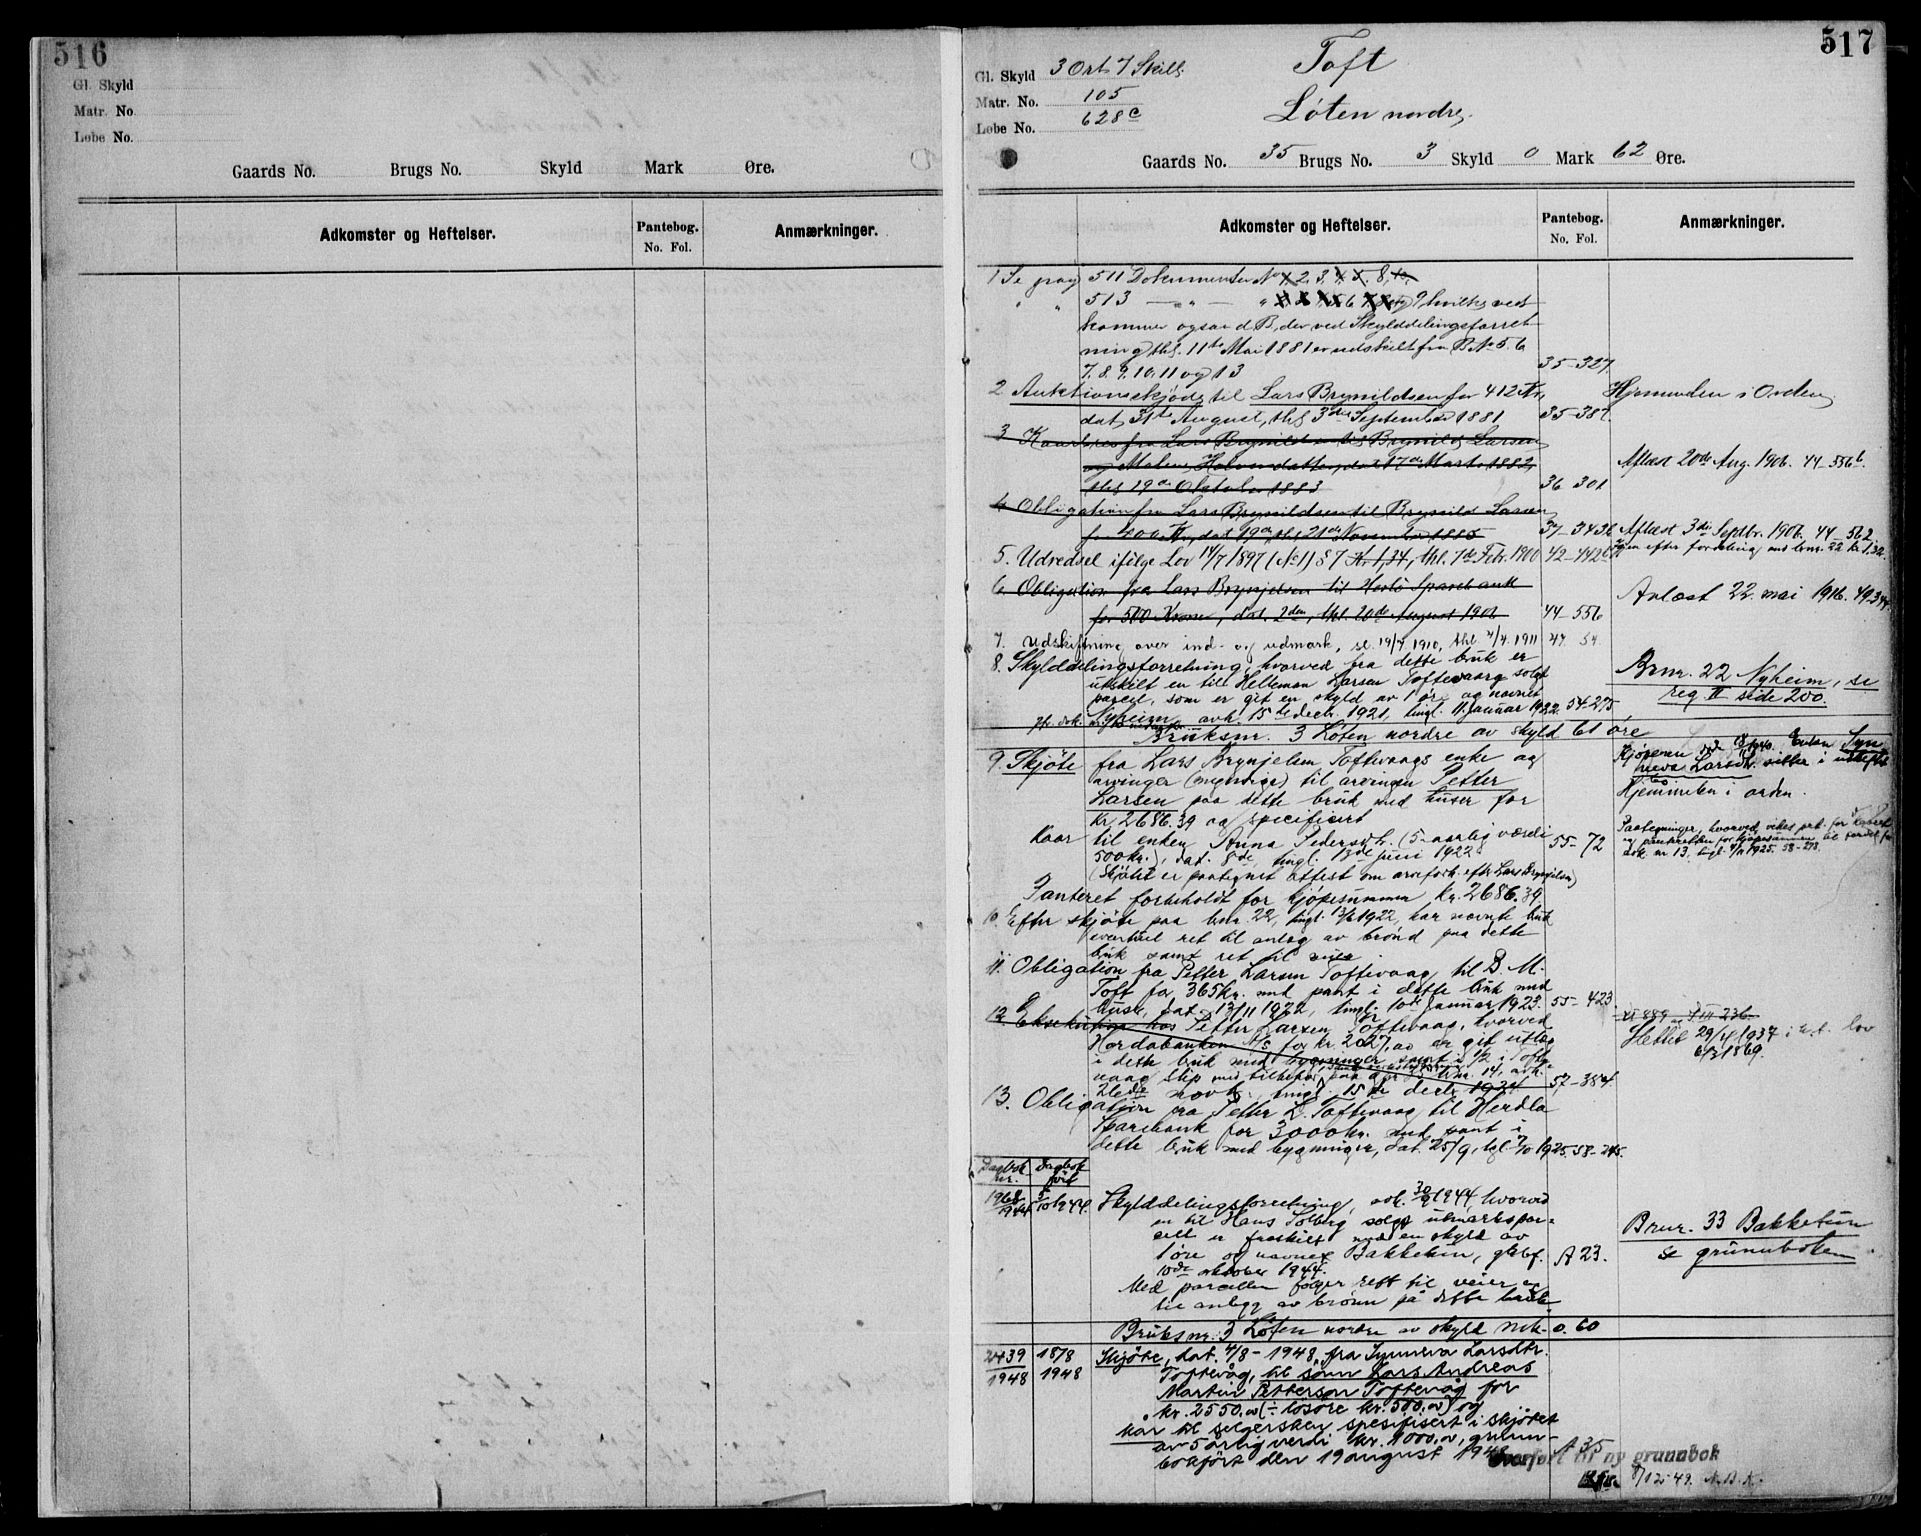 516
Gl. Skyld
Matr. No.
Løbe No.
Gaards No. Brugs No. Skyld Mark Øre.
Adkomster og Heftelser.
Pantebog.
No. Fol.
Anmærkninger.
517
Toft
Gl. Skyld 3 Ort 7 Skill.
Matr. No. 105
Løten nordre,
Løbe No. 628c
Gaards No. 35 Brugs No. 3 Skyld 0 Mark 62 Øre.
Adkomster og Heftelser.
Pantebog.
No. Fol.
Anmærkninger.
1 Se pag 511 Dokumenter No 1, 2, 3, 4, 5. 8, 10.
" " 513 — " — " 9 hvilke ved
kommer ogsaa d B, der ved Skylddelingsforret
ning thl. 11te Mai 1881 er udskilt fra B No 5. 6
7. 8. 9. 10. 11 og 13 35-327
2 Auktionsskjøde til Lars Brynildsen for 412 Kr, Hjemmelen i Orden,
dat. 31te August, thl 3die September 1881 35-387.
3 Kaarbrev fra Lars Brynildsen til Brynild Larsen
og Malene Halvorsdatter, dat 17de Marts 1882,
thl 19de Oktober 1883 36 301 Aflæst 20de Aug. 1906. 44-556b.
4 Obligation fra Lars Brynildsen til Brynild Larsen
for 400 Kr, dat 19de, thl 21de November 1885 37-343b Aflæst 3die Septbr. 1906. 44-562
5. Udredsel ifølge Lov 14/7 1897 (No 1) § 7 Kr 1,34, thl. 7de Febr. 1900 42-442b igjen efter fordeling med brnr. 22 kr 1.32.
6 Obligation fra Lars Brynjelsen til Herlø Sparebank
for 500 Kroner, dat. 2den, thl. 20de August 1906 44-556 Avlæst 22. mai 1916. 49.344.
7. Udskiftning over ind- og udmark, sl. 19/4 1910, thl 4/4. 1911 47 54
8. Skylddelingsforretning, hvorved fra dette bruk er
utskilt en til Helleman Larsen Toftevaag solgt
parcel, som er git en skyld av 1 øre og navnet
Nyheim, avh. 15de decbr. 1921, tingl. 11. januar 1922. 54-275
Brnr. 22 Nyheim, se
reg. II side 200.
Bruksnr. 3 Løten nordre av skyld 61 øre
9. Skjøte fra Lars Brynjelsen Toftevaags enke og
arvinger (myndige) til arvingen Petter
Larsen paa dette bruk med huser for
kr. 2686.39 og specificert
kaar til enken Anna Pedersdtr. (5-aarlig værdi
500 kr.), dat. 8de, tingl. 13de juni 1922 55-72
(Skjøtet er paategnet attest om arveforh. efter Lars Brynjelsen)
Panteret forbeholdt for kjøpesummen kr. 2686.39
Hjemmelen i orden.
10. Efter skjøte paa brnr. 22, tingl. 13/6 1922, har nævnte bruk
eventuel ret til anlæg av brønd paa dette
bruk samt ret til veier.
11. Obligation fra Petter Larsen Toftevaag til B. M.
Toft for 365 kr. med pant i dette bruk med
huse, dat. 13/11 1922, tingl. 10de januar 1923. 55-423
12 Eksekution hos Petter Larsen Toftevaag, hvorved
Hordabanken A/S for kr. 2027,00 er git utlæg
i dette bruk med bygninger samt i 1/2 i Tofte-
vaag slip med tilbehør paa gnr. 35 brnr. 14, avh.
26de novb., tingl. 15de decbr 1924 57-384
Slettet 29/4 1937 i h.t. lov
6/3 1869.
13. Obligation fra Petter L. Toftevaag til Herdla
Sparebank for 3000 kr. med pant i
dette bruk med bygninger, dat. 25/9, tgl. 7/10 1925. 58-245.
Dagbok nr. Dagbok ført
1968/1944 5/10 1944. Skylddelingsforretning, avh. 30/9 1944, hvorved
en til Hans Solberg solgt utmarkspar-
sell er fraskilt med en skyld av
1 øre og navnet Bakketun, gbkf. A 23.
10de oktober 1944.
Brnr. 33 Bakketun
se grunnboken
Med parsellen følger rett til veier og
til anlegg av brønn på dette bruk
Bruksnr. 3 Løten nordre av skyld mk. 0.60
2439/1948 18/8 1948 Skjøte, dat. 4/8-1948, fra Synneva Larsdtr.
Toftevåg, til sønn Lars Andreas
Martin Petterson Toftevåg for
kr. 2550,00 (÷ løsøre kr. 500,00) og
kår til selgersken spesifisert i skjøtet
av 5 årlig verdi kr. 1000.00, grunn-
bokført den 19 august 1948 A 35
Overført til ny grunnbok
8/12-49. N. B. K.